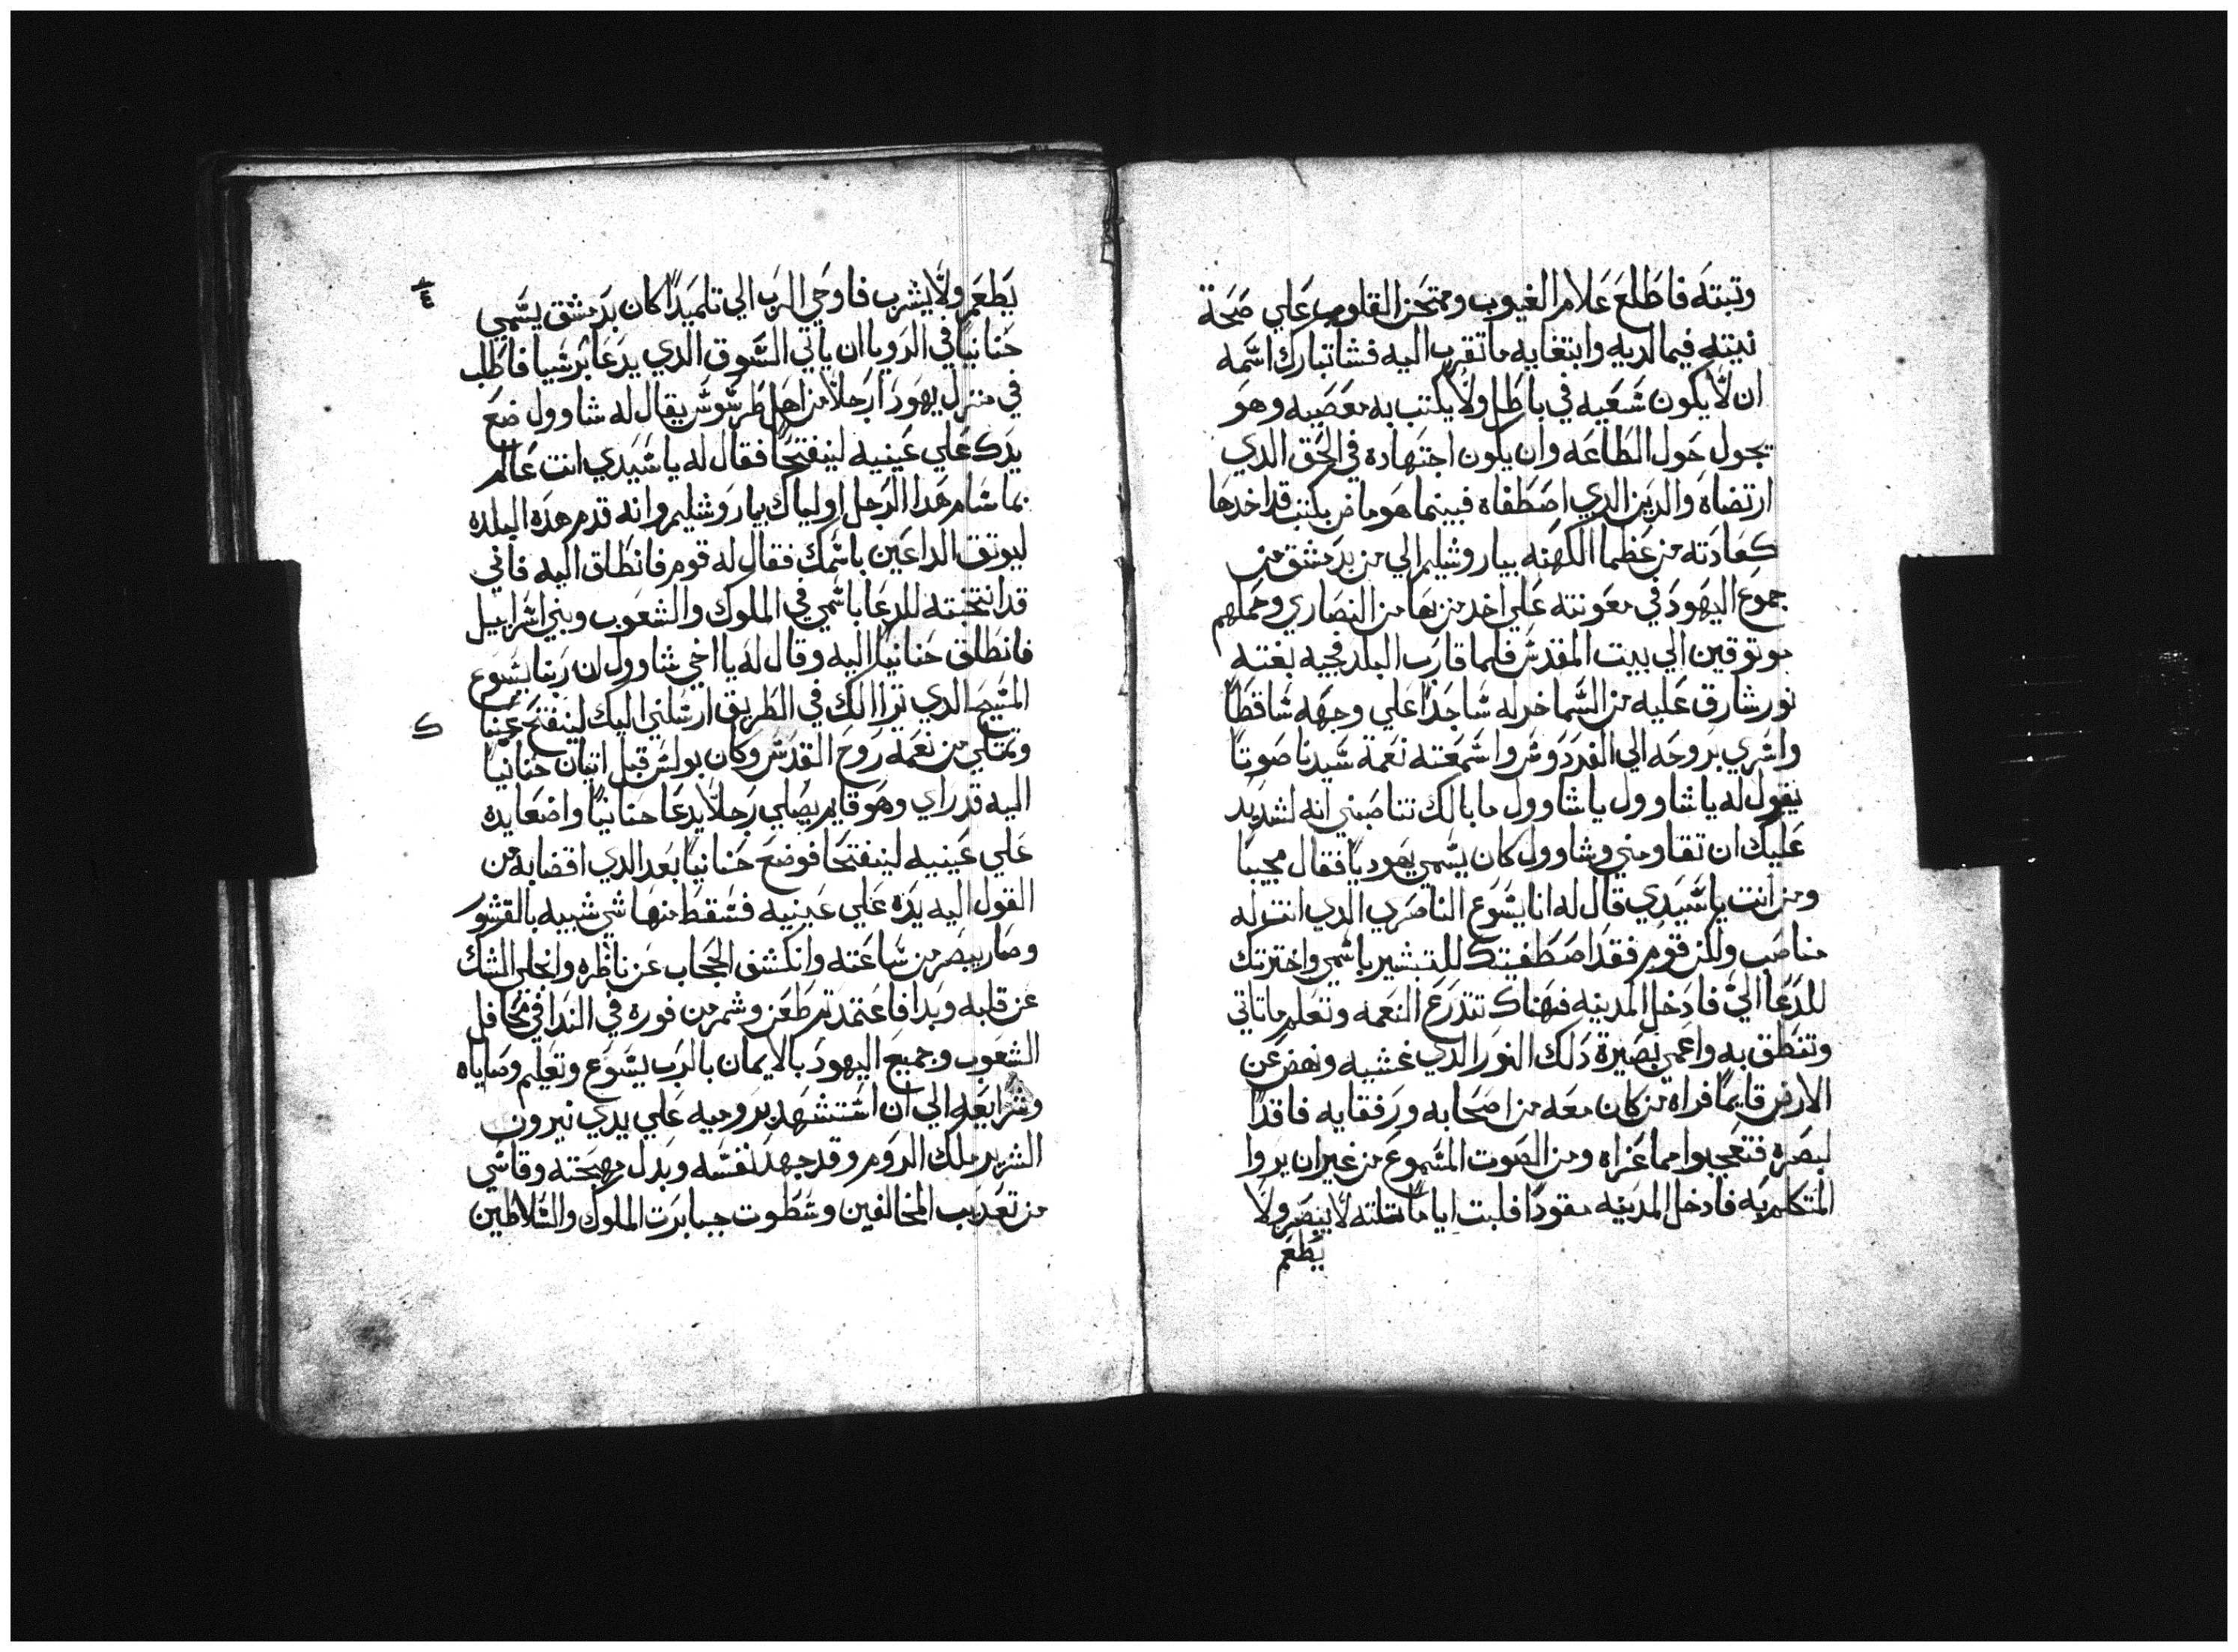 وتبته فاطلع علام الغيوب وممتحن القلوب علي صحة
نيته فيما لديه وابتغايه ما تقرب اليه فشا تبارك اسمه
ان لا يكون شعيه في باطل ولا يكتب به معصيه وهو
يجول حول الطاعه وان يكون اجتهاده في الحق الدي
ارتضاه والدين الدي اصطفاه فبينما هو ماض بكتب قد اخدها
كعادته من عظما الكهنه بياروشليم الي من بدمشق من
جموع اليهود في معونته علي اخد من بها من النصاري وحملهم
موتوقين الي بيت المقدس فلما قارب البلد فجيه بغته
نور شارق عليه من السما خر له ساجدا علي وجهه ساقطا
واسري بروحه الي الفردوس واسمعته نعمة سيدنا صوتا
يقول له ياشاوول ياشاوول ما بالك تناصبني انه لشديد
عليك ان تقاومني وشاوول كان يسمي يهوديا فقال مجيبا
ومن انت ياسيدي قال له انا يسوع الناصري الدي انت له
مناصب ولكن قوم فقد اصطفيتك للتبشير باسمي واخترتك
للدعا الي فادخل المدينه فهناك تتدرع النعمه وتعلم ما تاتي
وتنطق به واعمي بصيرة دلك النور الدي غشيه ونهض عن
الارض قايما فراه من كان معه من اصحابه ورفقايه فاقدا
لبصره فتعجبوا مما عراه ومن الصوت المسموع من غير ان يروا
المتكلم به فادخل المدينه مقودا فلبت اياما تلته لا يبصر ولا
يطعم
يطعم ولا يشرب فاوحي الرب الي تلميدا كان بدمشق يسمي
حنانيا في الرويا ان ياتي السوق الدي يدعا برشيا فاطلب
في منزل يهودا رجلا من اهل طرسوس يقال له شاوول ضع
يدك علي عينيه لينفتحا فقال له ياسيدي انت عالم
بما سام هدا الرجل اولياك بياروشليم وانه قدم هده البلده
ليوتق الداعين باسمك فقال له قوم فانطلق اليه فاني
قد انتخبته للدعا باسمي في الملوك والشعوب وبني اسراييل
فانطلق حنانيا اليه وقال له يا اخي شاوول ان ربنا يسوع
المسيح الدي تراا لك في الطريق ارسلني اليك لينفتح عينيا
وتمتلي من نعمه روح القدس وكان بولس قبل اتيان حنانيا
اليه قد راي وهو قايم يصلي رجلا يدعا حنانيا واضعا يده
علي عينيه لينفتحا فوضع حنانيا بعد الدي اقضا به من
القول اليه يده علي عينيه فسقط منها شي شبيه بالقشور
وصار يبصر من ساعته وانكشف الحجاب عن ناظره وانجلي الشك
عن قلبه وبدا فاعتمد تم طعم وشمر من فوره في الندا في محافل
الشعوب وجميع اليهود بالايمان بالرب يسوع وتعليم وصاياه
وشرايعه الي ان استشهد بروميه علي يدي نيرون
الشرير ملك الروم وقد جهد نفسه وبدل مهجته وقاسي
من تعديب المخالفين وسطوت جبابرت الملوك والسلاطين